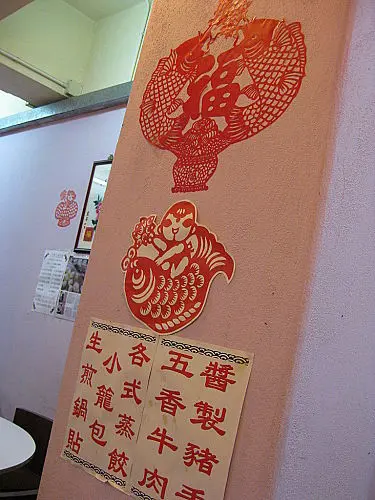 福
醬製豬手
五香牛肉
各式蒸餃
小籠包
生煎鍋貼